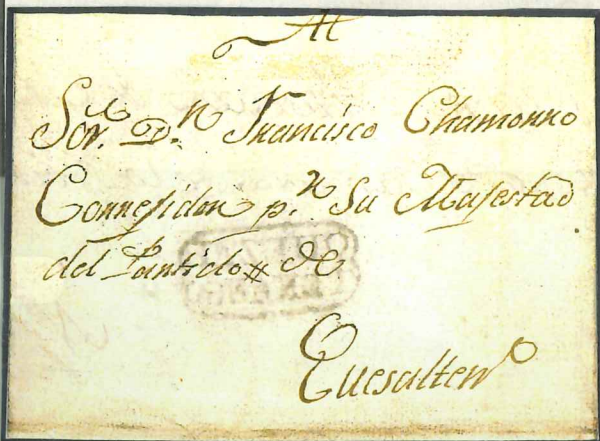 Al
Sor. Dn. Francisco Chamorro
Corregidor pr. Su Majestad
del Partido de
Quesalteno